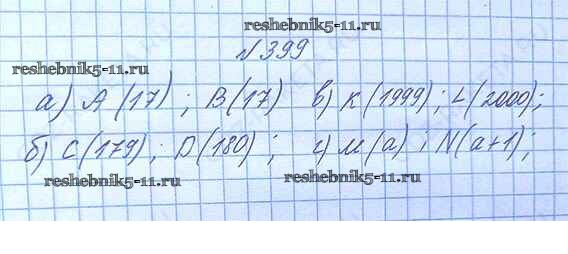 reshebnik5-11.ru
N 399
reshebnik5-11.ru
а) A (17) ; B(17) в) K (1999) ; L(2000);
б) C(179) ; D(180) ; г) M(a) ; N(a+1);
reshebnik5-11.ru
reshebnik5-11.ru